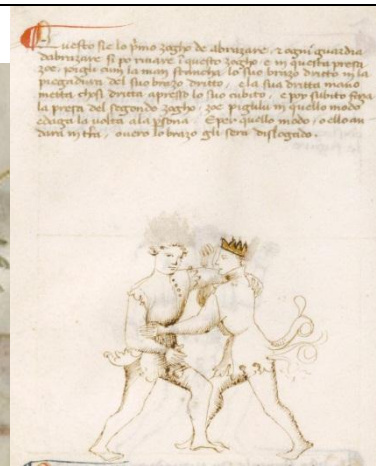 Questo sie lo primo zogho de abrazare. e ogni guardia
dabrazare si po rivare in questo zogho e in questa presa
zoe, pigli cum la man stancha lo suo brazo dritto in la
piegadura del suo brazo dritto, e la sua dritta mano
metta chosi dritta apresso lo suo cubito, e poy subito faza
la presa del segondo zogho, zoe pigilu in quello modo
e daga la volta ala persona. E per quello modo, o ello an
dara in terra, overo lo brazo gli sera dislogado.